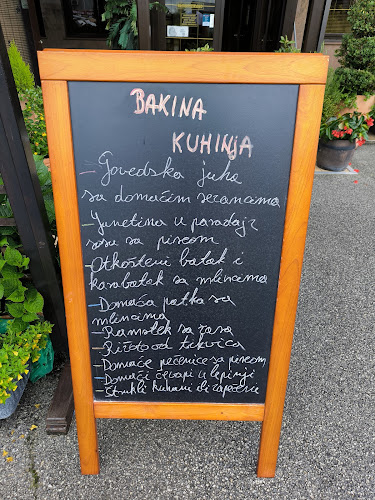 BAKINA
KUHINJA
- Govedska juha
sa domaćim rezancima
- Junetina u paradajz
sosu sa pireom
- Otkošteni batak i
karabatak sa mlincima
- Domaća patka sa
mlincima
- Ramstek sa žara
- Rižoto od tikvica
- Domaće pečenice sa pireom
- Domaći ćevapi u lepinji
- Štrukli kuhani ili zapečeni